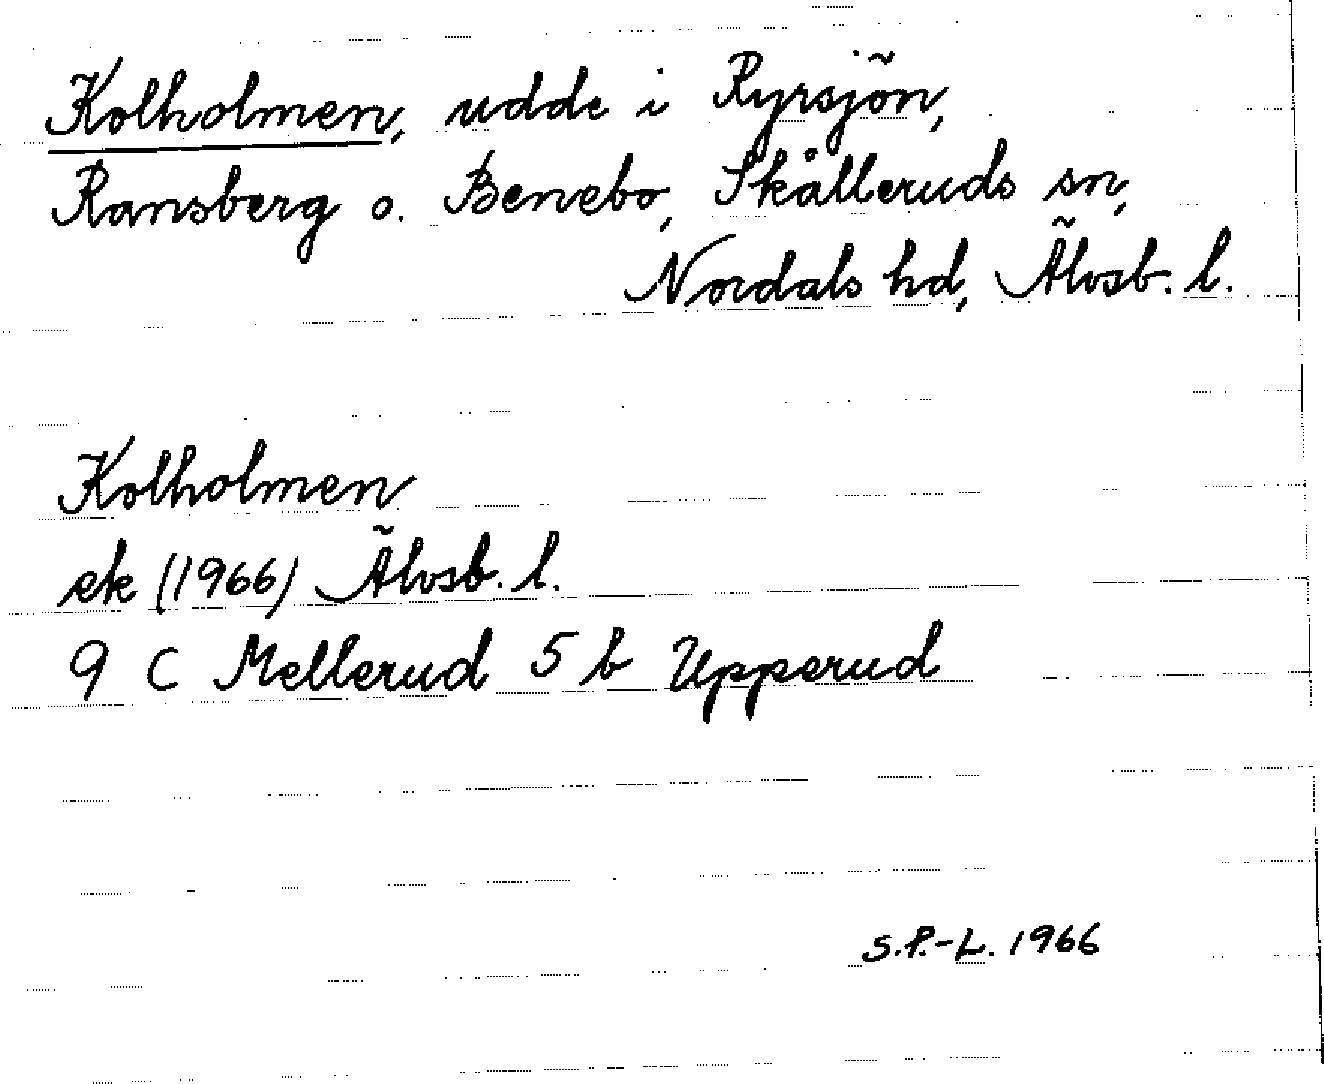 Kolholmen, udde i Ryrsjön,
Ransberg o. Benebo, Skålleruds sn,
Nordals hd, Älvsb. l.
Kolholmen
ek (1966) Älvsb. l.
9 C Mellerud 5 b Upperud
S.P.-L. 1966